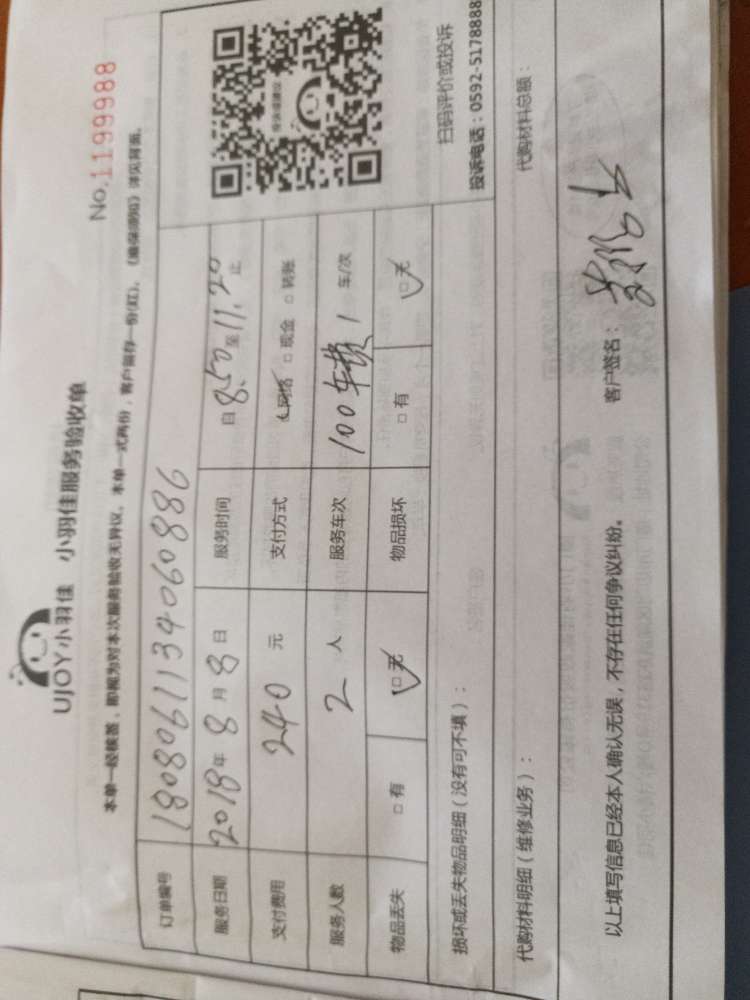 UJOY小羽佳 小羽佳服务验收单
No.1199988
本单一经核签，即视为对本次服务验收无异议。本单一式两份，客户留存一份(红)。《维保须知》详见背面。
订单编号 1808061134060886
服务日期 2018年8月8日 服务时间 自8:50至11.20止
支付费用 240元 支付方式 网络 □现金 □转账
服务人数 2人 服务车次 100车费1车/次
物品丢失 □有 □无 物品损坏 □有 □无
扫码评价或投诉
投诉电话：0592-5178888
损坏或丢失物品明细（没有可不填）：
代购材料明细（维修业务）： 代购材料总额：
以上填写信息已经本人确认无误，不存在任何争议纠纷。 客户签名：